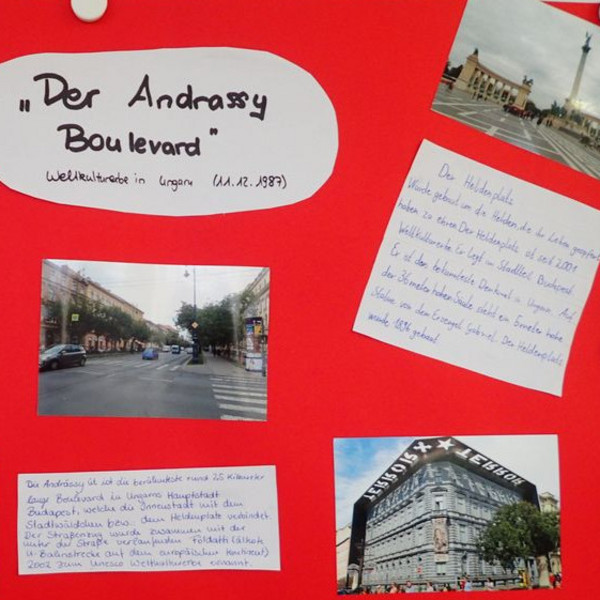 „Der Andrassy
Boulevard"
Weltkulturerbe in Ungarn (11.12.1987)
Der Heldenplatz
Wurde gebaut um die Helden, die ihr Leben geopfert
haben zu ehren. Der Heldenplatz ist seit 2001
Weltkulturerbe. Er liegt im Stadtteil Budapest.
Er ist das bekannteste Denkmal in Ungarn. Auf
der 36 meter hohen Säule steht ein 5 meter hohe
Statue von dem Erzengel Gabriel. Der Heldenplatz
wurde 1896 gebaut.
Die Andrássy út ist die berühmteste rund 2,5 Kilometer
lange Boulevard in Ungarns Hauptstadt
Budapest, welche die Innenstadt mit dem
Stadtwäldchen bzw. dem Heldenplatz verbindet.
Der Straßenzug wurde zusammen mit der
unter der Straße verlaufenden Földatti (älteste
U-Bahnstrecke auf dem europäischen Kontinent)
2002 zum Unesco Weltkulturerbe ernannt.
TERROR TERROR